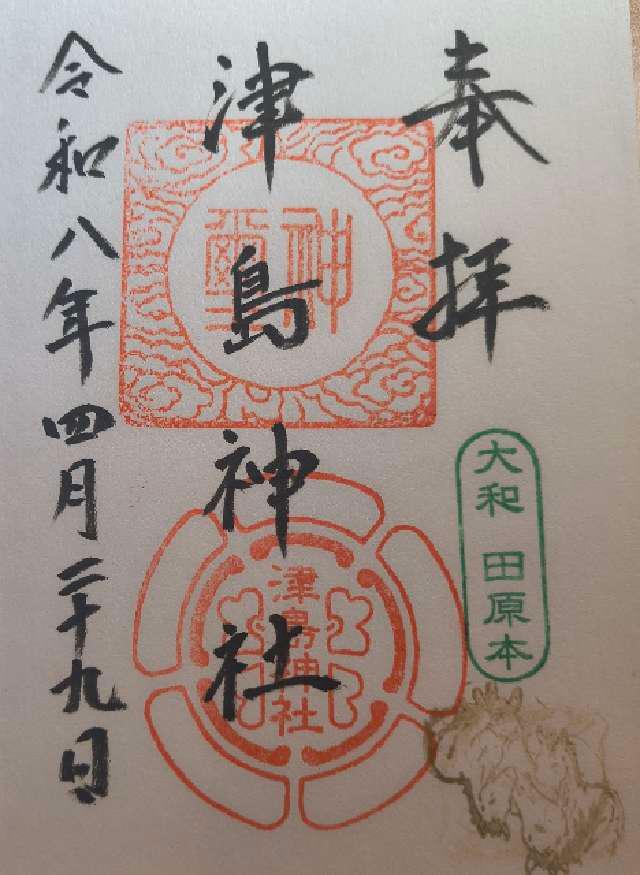 奉拝
大和 田原本
津島神社
神璽
津島神社
令和八年四月二十九日